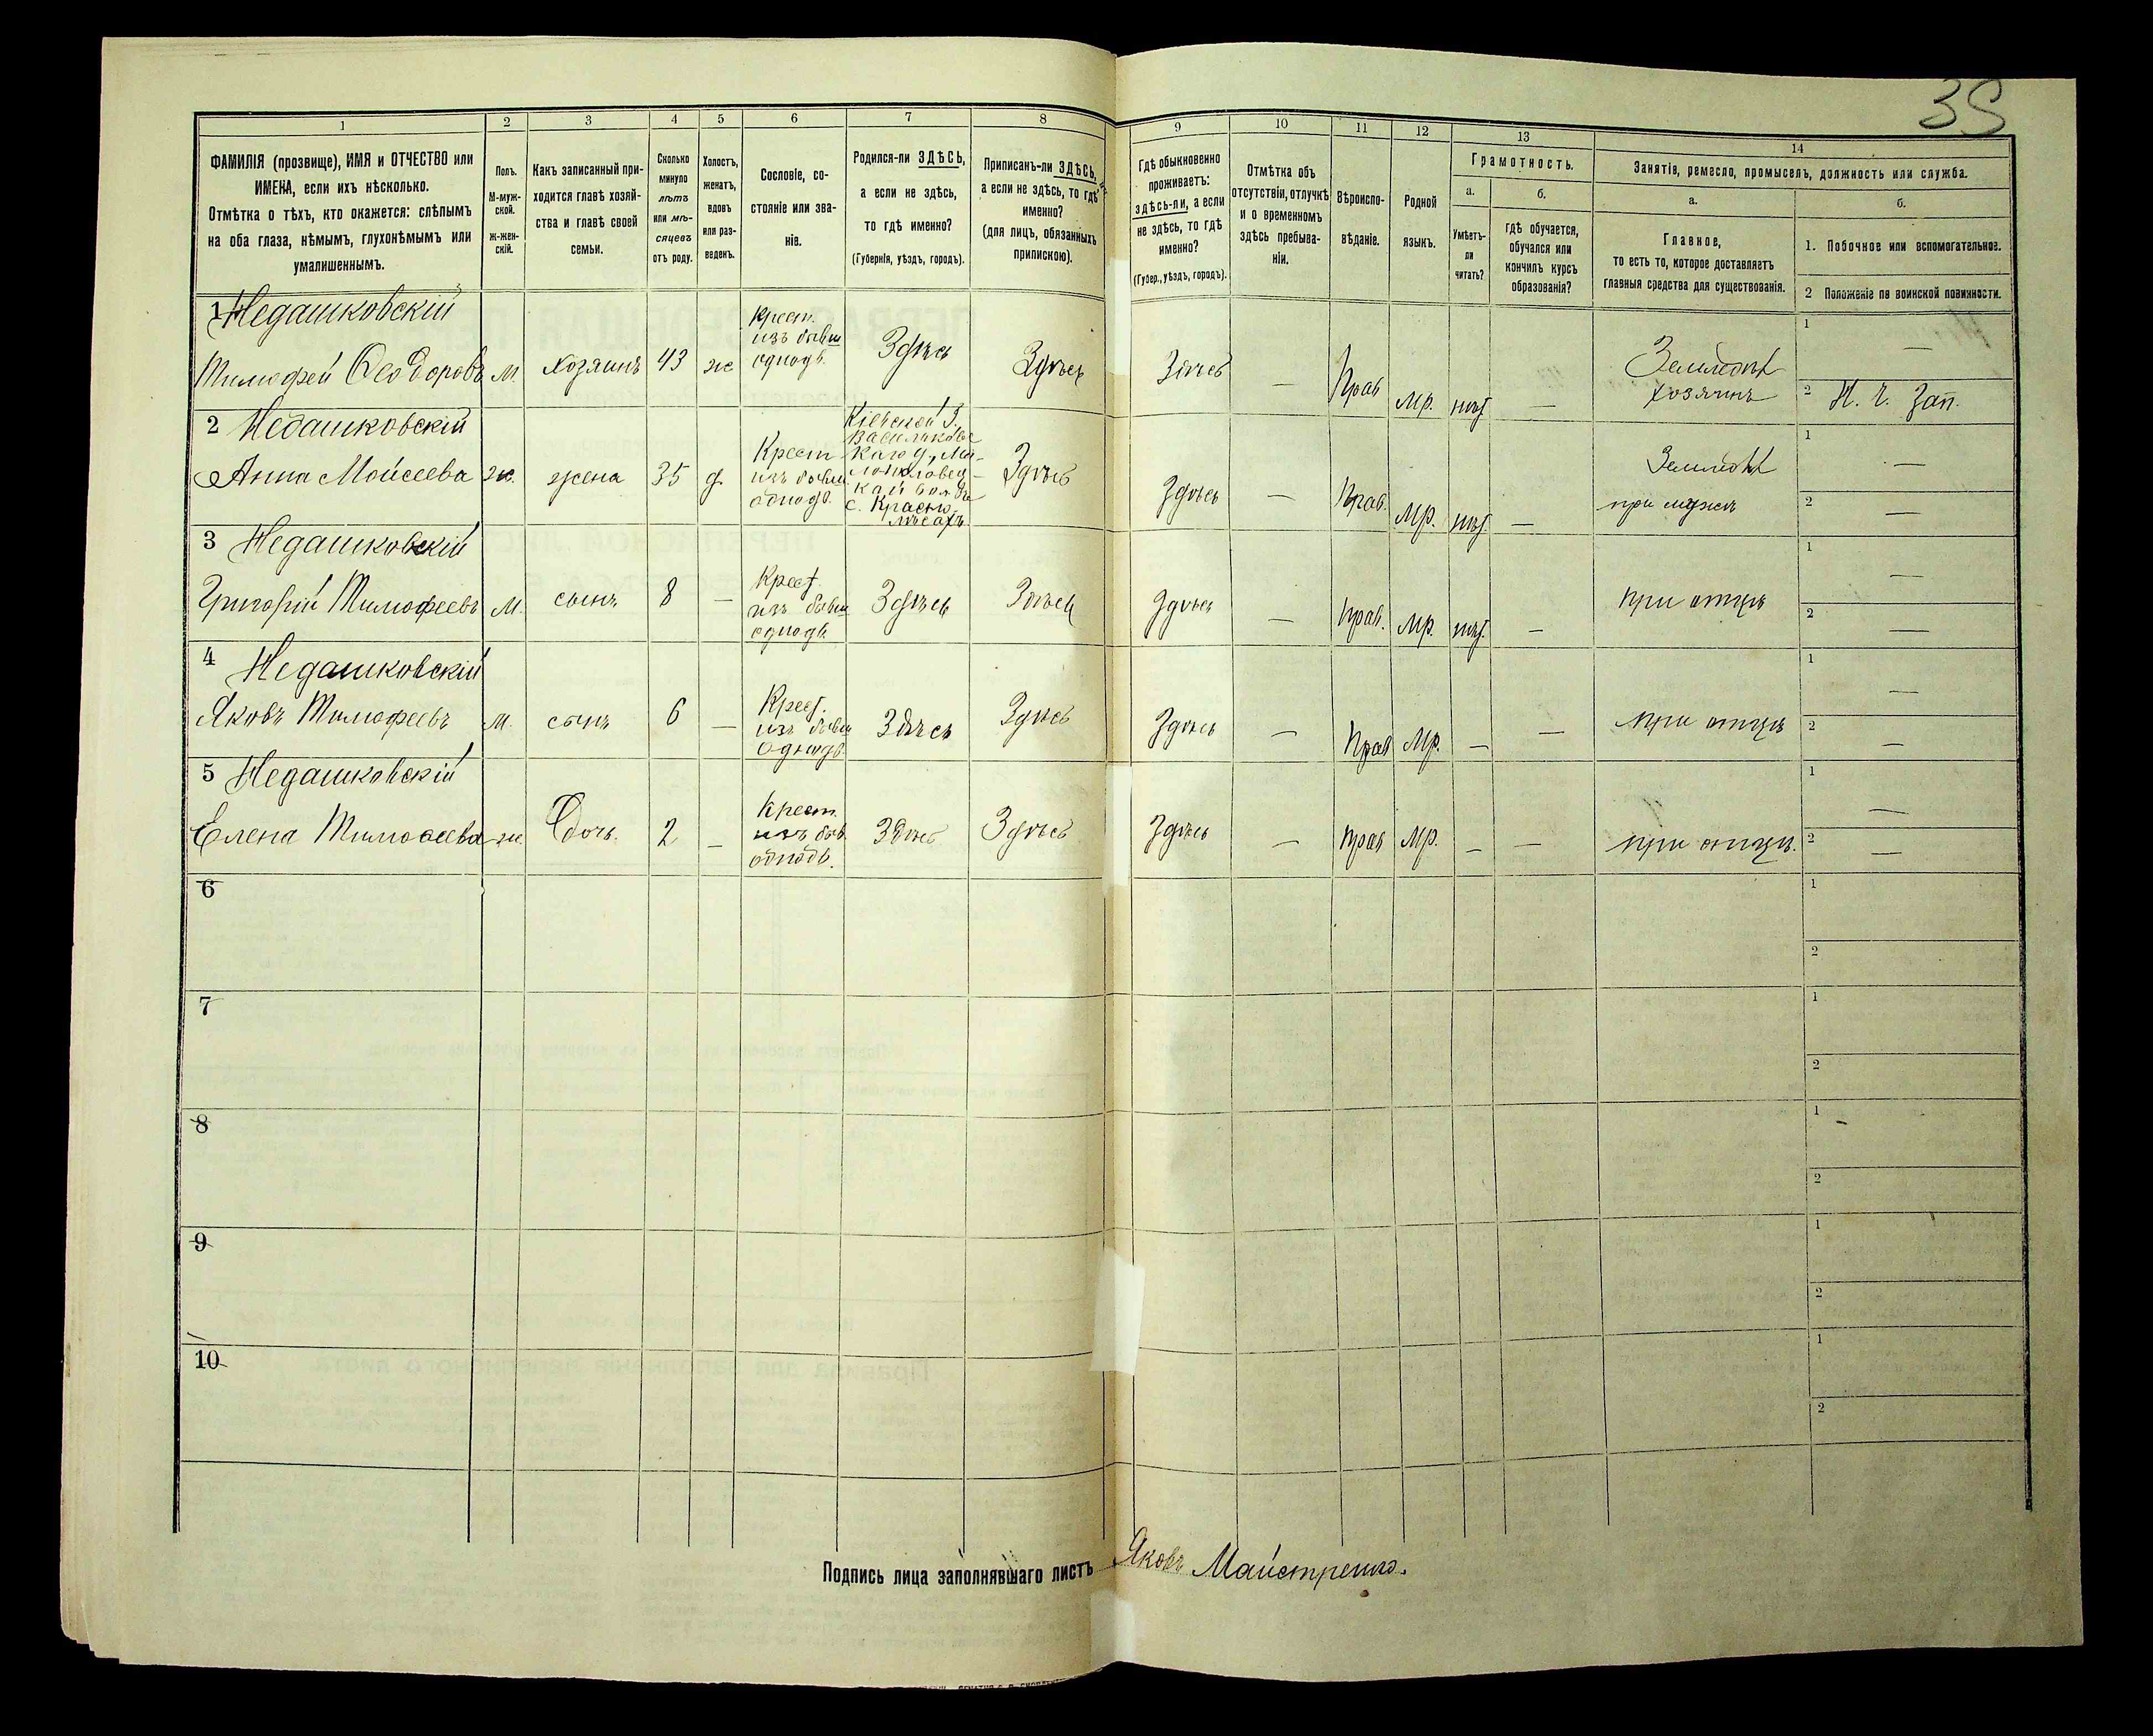 35
1
2
3
4
5
6
7
8
9
10
11
12
13
14
ФАМИЛІЯ (прозвище), ИМЯ и ОТЧЕСТВО или
ИМЕНА, если ихъ нѣсколько.
Отмѣтка о тѣхъ, кто окажется: слѣпымъ
на оба глаза, нѣмымъ, глухонѣмымъ или
умалишеннымъ.
Полъ.
М-муж-
ской.
ж-жен-
скій.
Какъ записанный при-
ходится главѣ хозяй-
ства и главѣ своей
семьи.
Сколько
минуло
лѣтъ
или мѣ-
сяцевъ
отъ роду.
Холостъ,
женатъ,
вдовъ
или раз-
веденъ.
Сословіе, со-
стояніе или зва-
ніе.
Родился-ли ЗДѢСЬ,
а если не здѣсь,
то гдѣ именно?
(Губернія, уѣздъ, городъ).
Приписанъ-ли ЗДѢСЬ,
а если не здѣсь, то гдѣ
именно?
(для лицъ, обязанныхъ
припискою).
Гдѣ обыкновенно
проживаетъ:
здѣсь-ли, а если
не здѣсь, то гдѣ
именно?
(Губер., уѣздъ, городъ).
Отмѣтка объ
отсутствіи, отлучкѣ
и о временномъ
здѣсь пребыва-
ніи.
Вѣроиспо-
вѣданіе.
Родной
языкъ.
Грамотность.
а.
Умѣетъ-
ли
читать?
б.
гдѣ обучается,
обучался или
кончилъ курсъ
образованія?
Занятія, ремесло, промыселъ, должность или служба.
а.
Главное,
то есть то, которое доставляетъ
главныя средства для существованія.
б.
1. Побочное или вспомогательное.
2 Положеніе по воинской повинности.
1 Недашковскій
Тимофей Ѳеодоровъ
м.
хозяинъ
43
ж
Крест.
изъ бывш
однодв.
Здѣсь
Здѣсь
Здѣсь
—
Прав
мр.
нѣт
—
Землед
хозяинъ
1 —
2 Н. ч. Зап.
2 Недашковскій
Анна Моисеева
ж.
жена
35
з.
Крест
изъ бывш
однодв.
Кіевской г.,
Васильковс
каго у.,
кой вол.
с. Красно
лѣсахъ
Здѣсь
Здѣсь
—
Прав.
мр.
нѣт
—
Землед
при мужѣ
1 —
2 —
3 Недашковскій
Григорій Тимофеевъ
м.
сынъ
8
—
Крест.
изъ бывш
однодв.
Здѣсь
Здѣсь
Здѣсь
—
Прав.
мр.
нѣт.
—
при отцѣ
1 —
2 —
4 Недашковскій
Яковъ Тимофеевъ
м.
сынъ
6
—
Крест.
изъ бывш
однодв.
Здѣсь
Здѣсь
Здѣсь
—
Прав
мр.
—
—
при отцѣ
1 —
2 —
5 Недашковскій
Елена Тимофеева
ж.
Дочь.
2
—
Крест.
изъ быв.
однодв.
Здѣсь
Здѣсь
Здѣсь
—
Прав
мр.
—
—
при отцѣ.
1 —
2 —
6
1
2
7
1
2
8
1
2
9
1
2
10
1
2
Подпись лица заполнявшаго листъ Яковъ Майстренко.